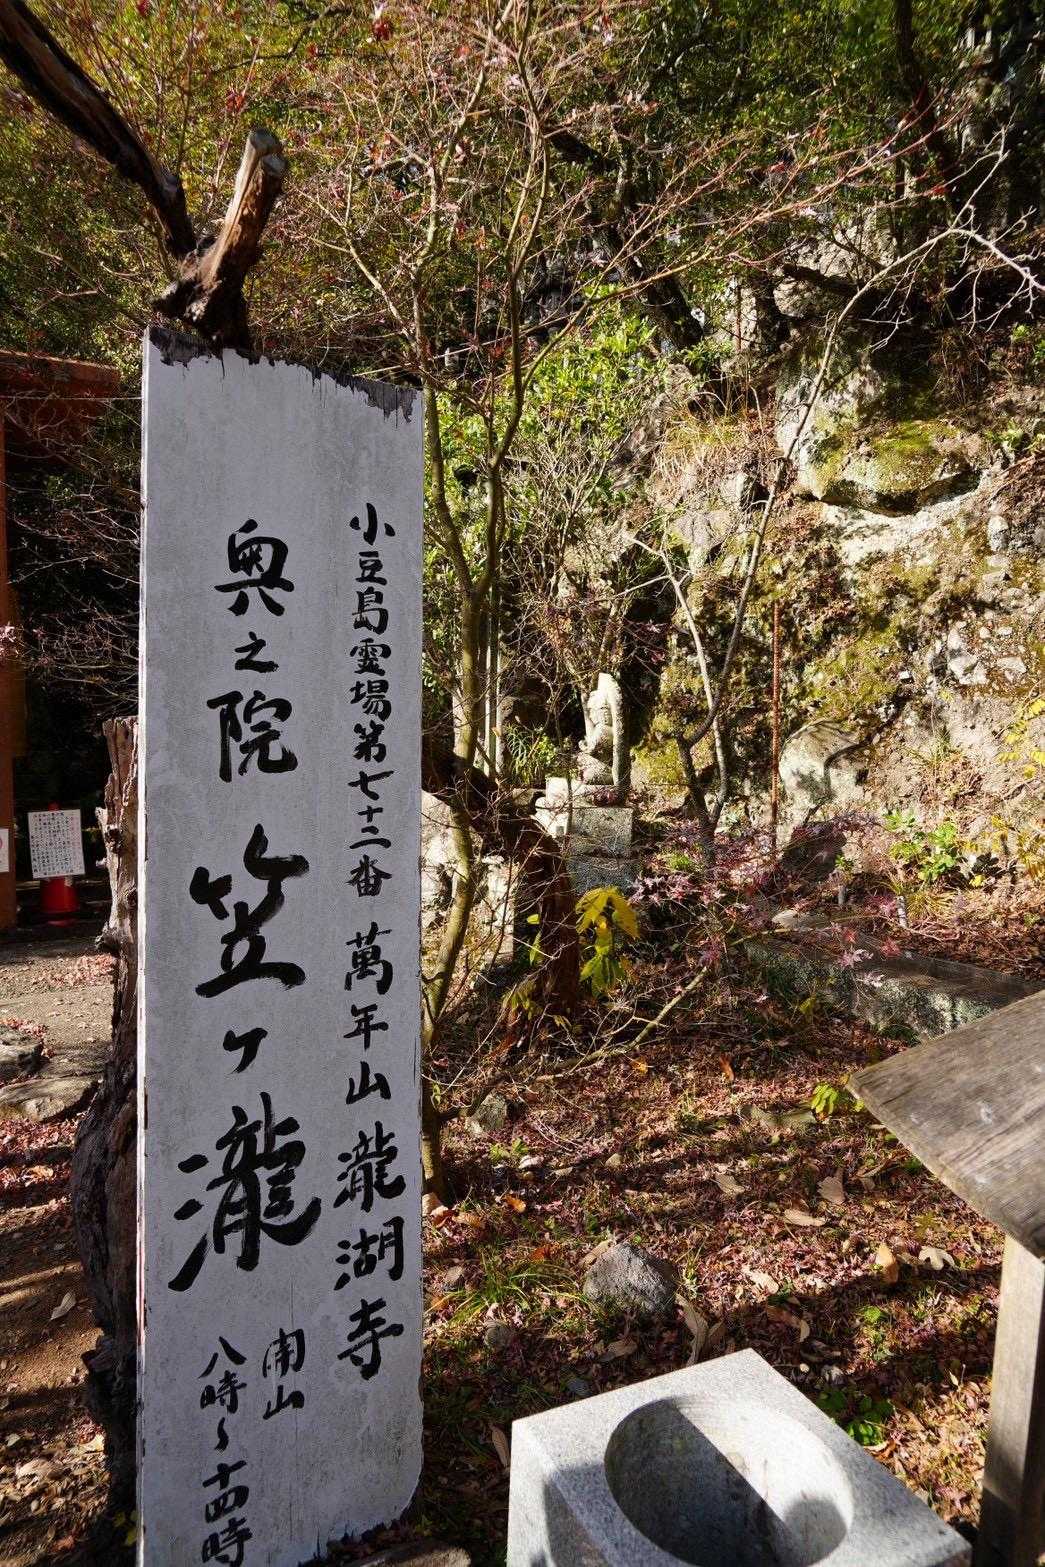 小豆島霊場第七十二番 萬年山瀧湖寺
奥之院 笠ヶ瀧
開山
八時〜十四時